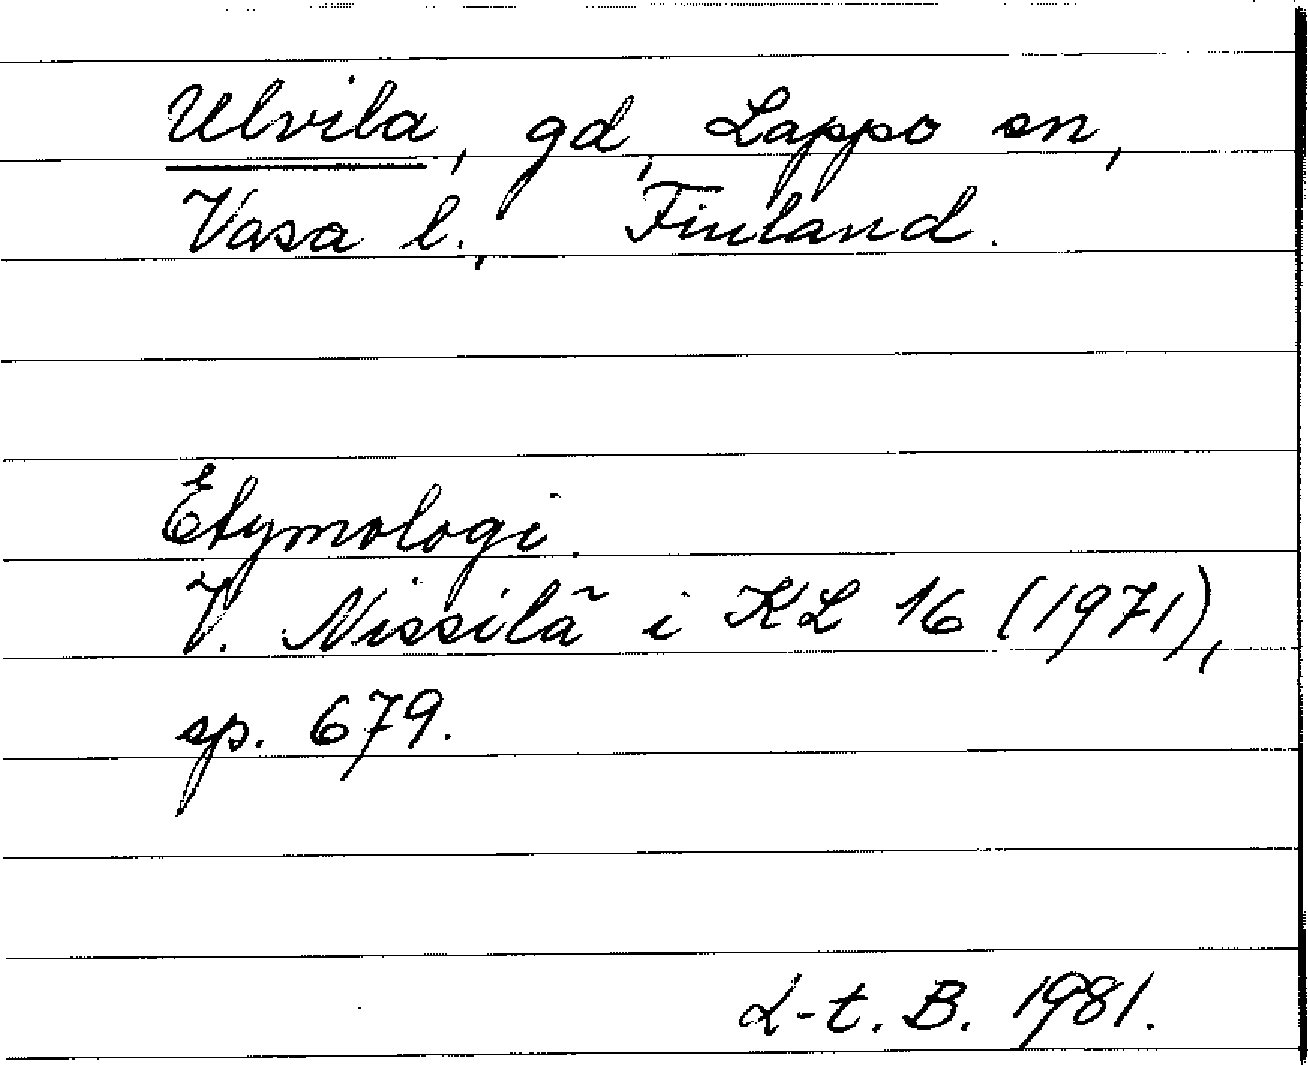 Ulvila, gd, Lappo sn,
Vasa l., Finland.
Etymologi.
V. Nissilä i KL 16 (1971),
sp. 679.
L-t. B. 1981.